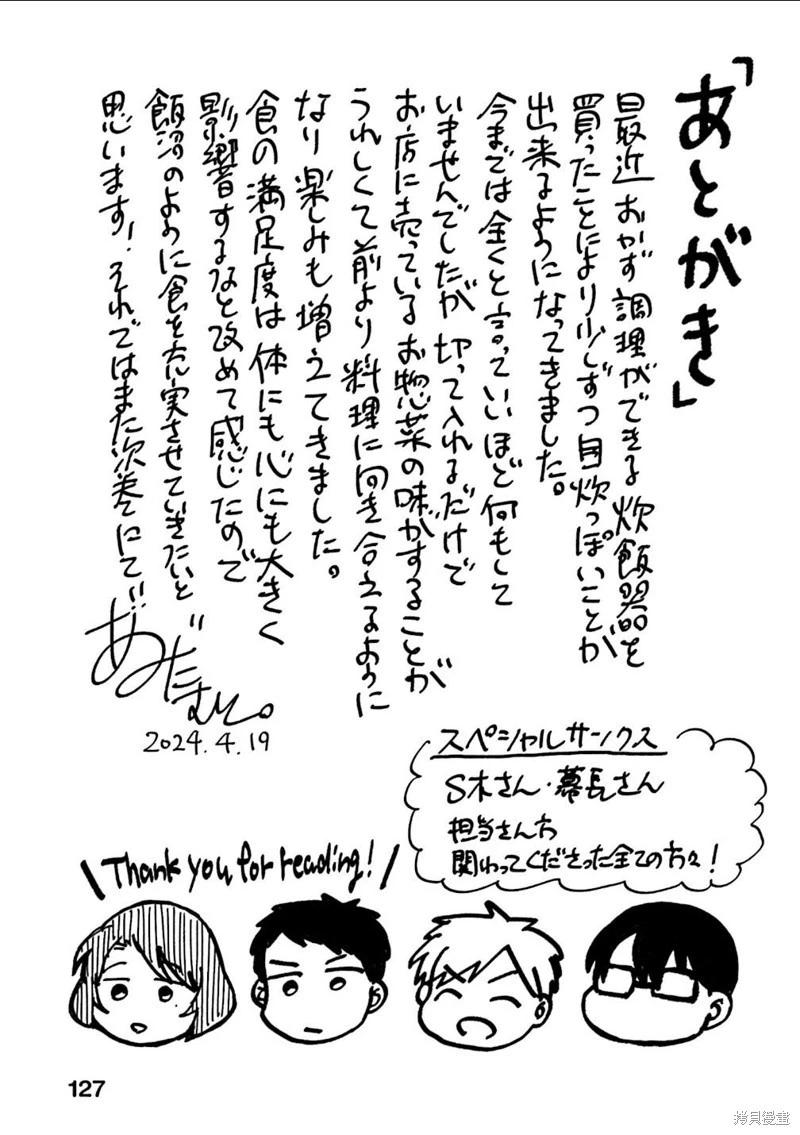 「あとがき」
最近おかず調理ができる炊飯器を
買ったことにより少しずつ自炊っぽいことが
出来るようになってきました。
今までは全くと言っていいほど何もして
いませんでしたが切って入れるだけで
お店に売っているお惣菜の味がすることが
うれしくて前より料理に向き合えるように
なり楽しみも増えてきました。
食の満足度は体にも心にも大きく
影響するなと改めて感じたので
飯沼のように食を充実させていきたいと
思います!それではまた次巻にて!!
2024.4.19
スペシャルサンクス
S木さん・幕長さん
担当さん方
関わってくださった全ての方々!
\ Thank you for reading! /
127
拷貝漫畫